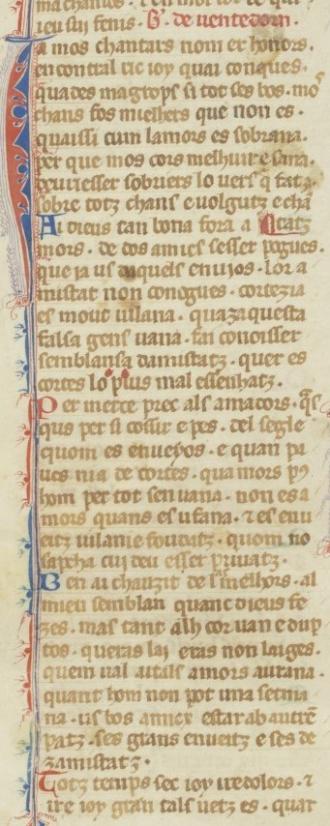 ieu sui fenis. B. de uentedorn.
a mos chantars nom er honors.
en contral ric ioy quai conques.
chans fos mielhers que non es.
quaissi cum lamors es sobrana.
per que mos cors melhur e sana.
sobre totz chans e uolgutz e
Ai dieus tan bona fora
mors. de dos amics sesser pogues.
que ia us daquels enuios. lor a
mistat non conogues. cortezia
es mout uilana. quaza questa
falsa gens uana. fai conoisser
semblansa damistatz. quer es
cortes lo plus mal essenhatz.
Per merce prec als amadors.
qus per si cossir e pes. del segle
quom es enueyos. e quan pa
ucs nia de cortes. quamors
hom per tot sen uana. non es a
mors quans es ufana. 7 es enu
eitz uilanie foudatz. quom no
sapcha cui deu esser priuatz.
Ben ai chauzit de lmelhors. al
mieu semblan quanc dieus fe
zes. mas tant alh cor uan e dup
tos. queras lai eras non laiges.
quem ual aitals amors aurana.
quant hom non pot una setma
na. us bos amicx estar ab autre
patz. ses grans enueitz e ses de
zamistatz.
Totz temps sec ioy ire dolors. 7
ire ioy gran tals uetz es. quar